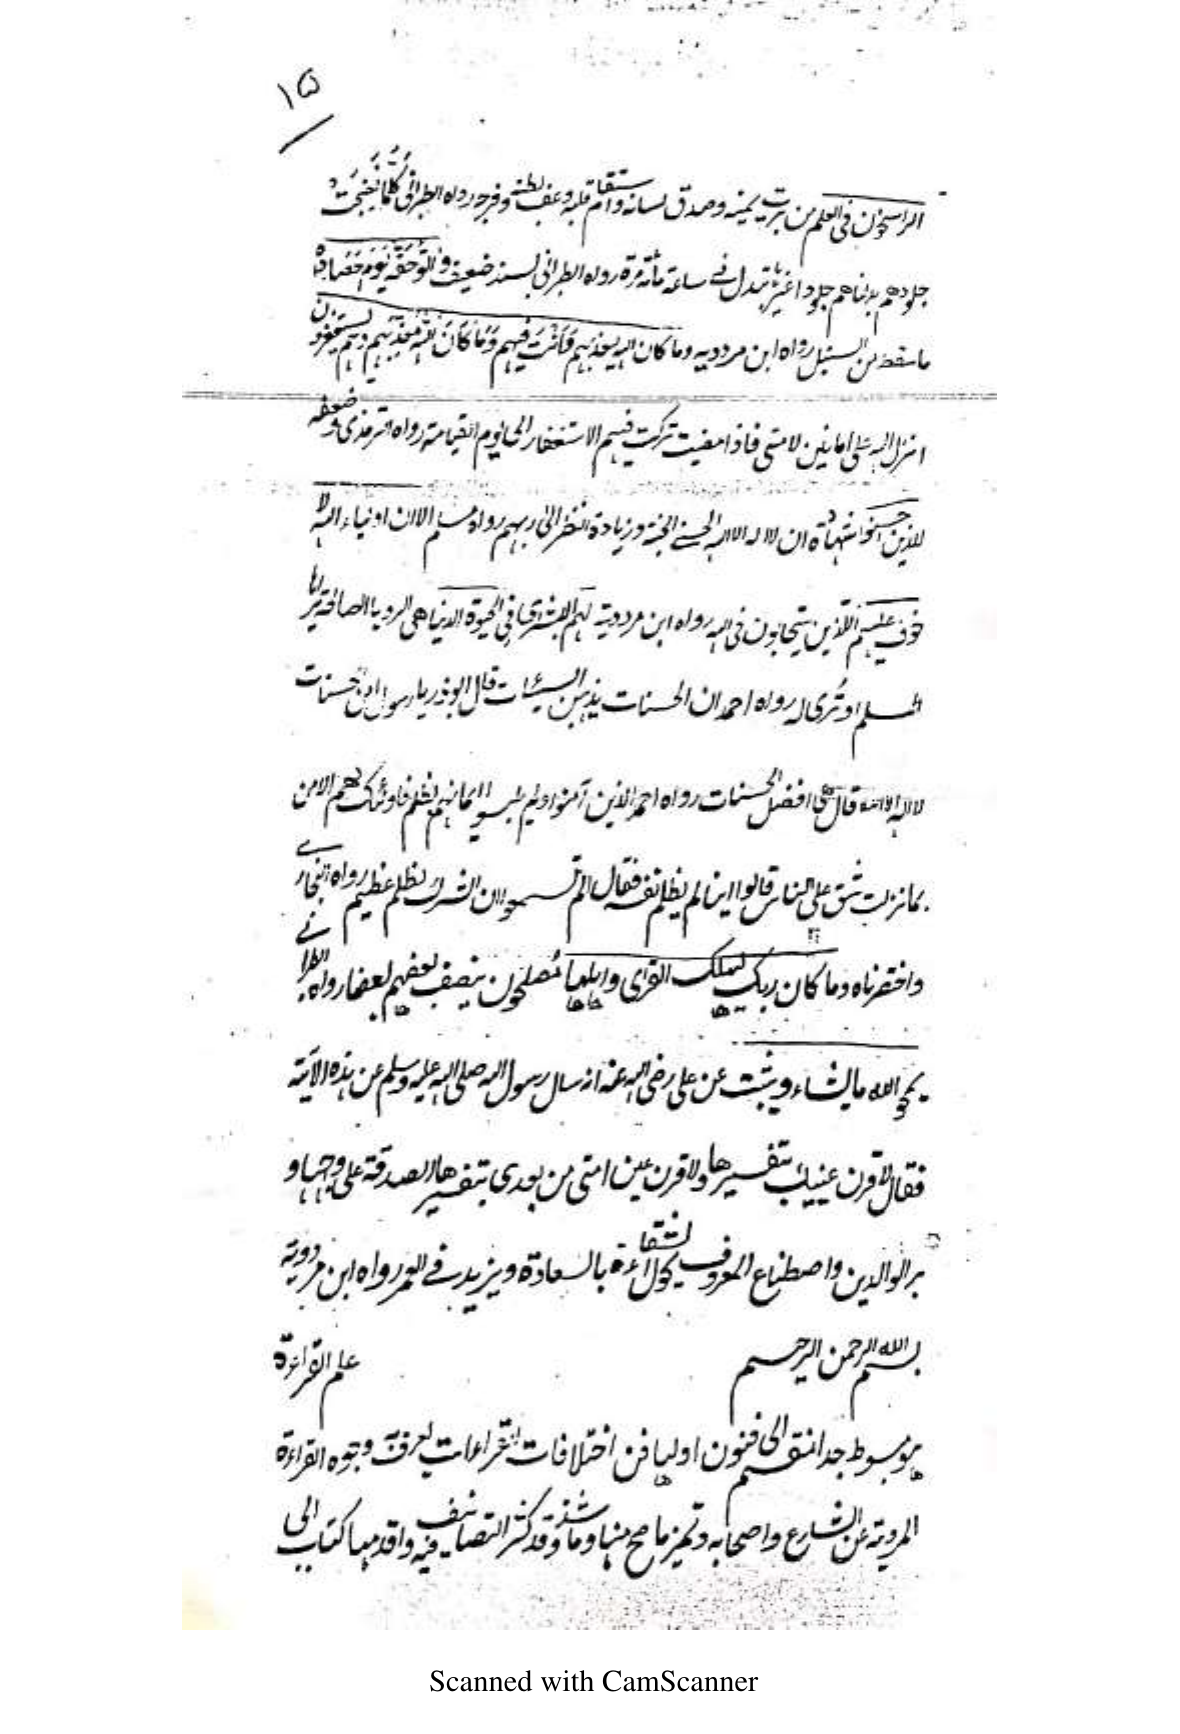 ۱۵
الراسخون فى العلم من برت يمينه وصدق لسانه واستقام قلبه وعف بطنه وفرجه رواه الطبرانى كُلَّمَا نَضِجَتْ
جلودهم بدلناهم جلودا غيرها تبدل فى ساعة مأته مرة رواه الطبرانى بسند ضعيف وَاٰتُوْ حَقَّهُ يَوْمَ حَصَادِهٖ
ما سقط من السنبل رواه ابن مردويه وما كان الله ليعذبهم وَاَنْتَ فيهم وَمَا كَانَ اللّٰه مُعَذِّبَهُم وهم يستغفرون
انزل الله على امانين لامتى فاذا مضيت تركت فيهم الاستغفار الى يوم القيامة رواه الترمذى وضعفه
للذين احسنوا شهادة ان لا اله الا الله الحسنى الجنة وزيادة النظر الى ربهم رواه مسلم الا ان اولياء الله لا
خوف عليهم الذين يتحابون فى الله رواه ابن مردوية لهم البشرى فى الحيوة الدنيا هى الرويا الصالحة يراها
المسلم او تُرى له رواه احمد ان الحسنات يذهبن السيئات قال ابوذر يا رسول الله امن حسنات
لا اله الا الله قال هى افضل الحسنات رواه احمد الذين آمنوا ولم يلبسوا ايمانهم بظلم فاولئك لهم الامن
لما نزلت شق على الناس قالوا اينا لم يظلم نفسه فقال الم تسمعوا ان الشرك لظلم عظيم رواه البخارى
واختصرناه وما كان ربك ليهلك القرى واهلها مُصلحون ينصف بعضهم بعضا رواه الطبرانى
يمحو الله ما يشاء ويثبت عن على رضى الله عنه انه سال رسول الله صلى الله عليه وسلم عن هذه الآية
فقال لاقرن عينيك بتفسيرها ولاقرن عين امتى من بعدى بتفسيرها الصدقة على وجهها و
بر الوالدين واصطناع المعروف يحول الشقاءة بالسعادة ويزيد فى العمر رواه ابن مردوية
بسم الله الرحمن الرحيم علم القراءة
هو مبسوط جدا منقسم الى فنون اوليها فن اختلافات القراءات لمعرفة وجوه القراءة
المروية عن الشارع واصحابه وتميز ما صح منها وما شذ وقد كثر التصانيف فيه واقدمها كتاب الى